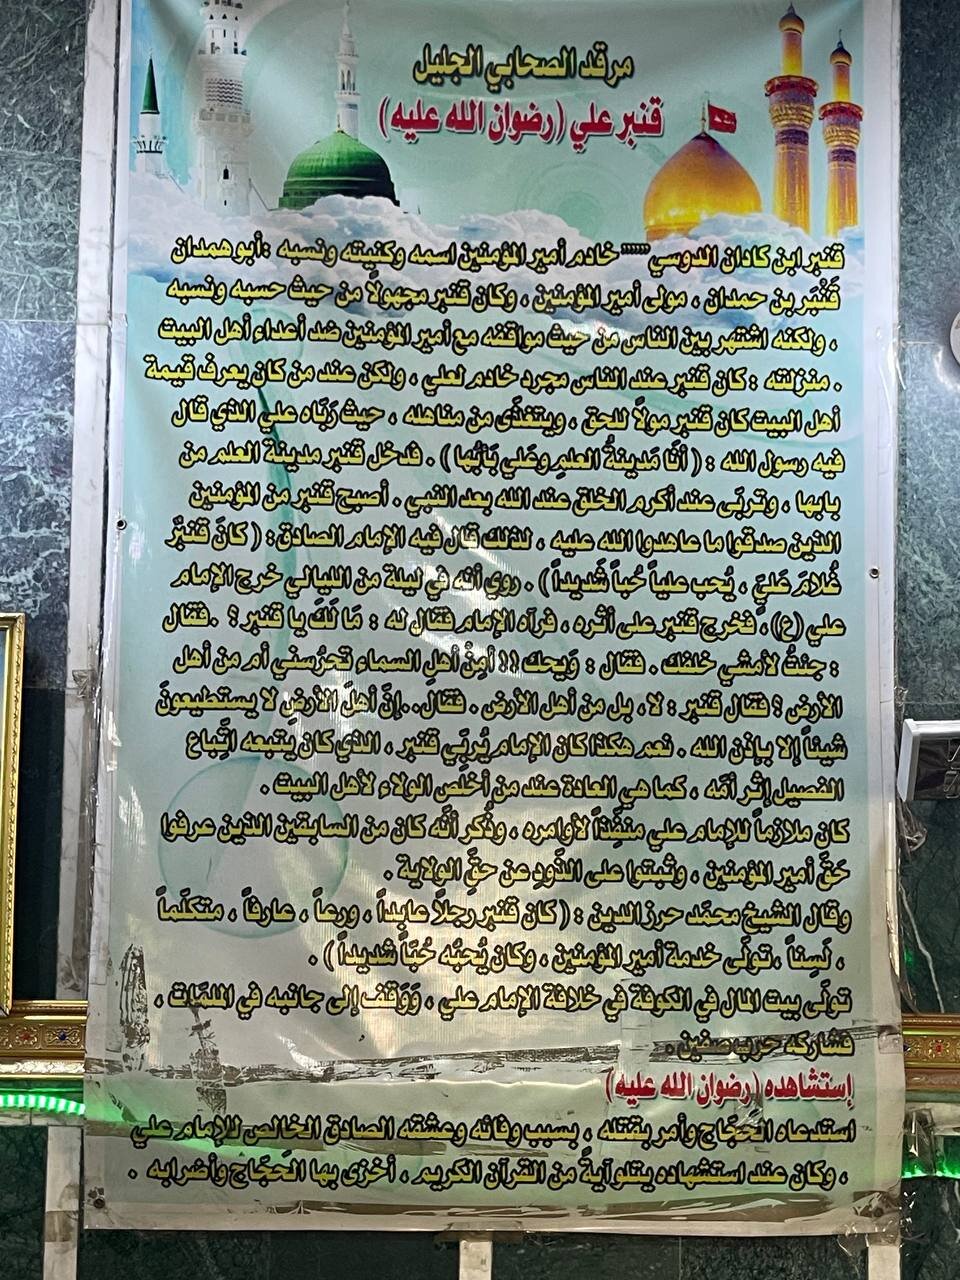 مرقد الصحابي الجليل
قنبر علي (رضوان الله عليه)
قنبر ابن كادان الدوسي """ خادم أمير المؤمنين اسمه وكنيته ونسبه :أبو همدان
قَنْبَر بن حمدان ، مولى أمير المؤمنين ، وكان قنبر مجهولاً من حيث حسبه ونسبه
، ولكنه اشتهر بين الناس من حيث مواقفه مع أمير المؤمنين ضد أعداء أهل البيت
. منزلته : كان قنبر عند الناس مجرد خادم لعلي ، ولكن عند من كان يعرف قيمة
أهل البيت كان قنبر مولاً للحق ، ويتغذَى من مناهله ، حيث رَبّاه علي الذي قال
فيه رسول الله : ( أنَا مَدينةُ العلمِ وعَلي بَابُها ) . فدخل قنبر مدينة العلم من
بابها ، وتربّى عند أكرم الخلق عند الله بعد النبي . أصبح قنبر من المؤمنين
الذين صدقوا ما عاهدوا الله عليه ، لذلك قال فيه الإمام الصادق : ( كانَ قَنبرٌ
غُلامَ عَليٍ ، يُحب علياً حُباً شَديداً ) . روي أنه في ليلة من الليالي خرج الإمام
علي (ع) ، فخرج قنبر على أثره ، فرآه الإمام فقال له : مَا لَكَ يا قنبر ؟ .فقال
: جئتُ لأمشي خلفك . فقال : وَيحك !! أمِنْ أهلِ السماءِ تحرُسني أم من أهل
الأرض ؟ فقال قنبر : لا، بل من أهل الأرض . فقال..إنَّ أهلَ الأرضِ لا يستطيعونَ
شيئاً إلا بإذن الله . نعم هكذا كان الإمام يُربّي قنبر ، الذي كان يتبعه اتّباع
الفصيل إثر أمّه ، كما هي العادة عند من أخلص الولاء لأهل البيت .
كان ملازماً للإمام علي منفّذاً لأوامره ، وذُكر أنّه كان من السابقين الذين عرفوا
حَقّ أمير المؤمنين ، وثبتوا على الذَودِ عن حقّ الولاية .
وقال الشيخ محمّد حرز الدين : ( كان قنبر رجلاً عابداً ، ورعاً ، عارفاً ، متكلّماً
، لَسِناً ، تولّى خدمة أمير المؤمنين ، وكان يُحبّه حُبّاً شديداً ) .
تولّى بيت المال في الكوفة في خلافة الإمام علي ، وَوَقف إلى جانبه في الملمّات ،
فشاركه حرب صفين .
إستشاهده (رضوان الله عليه)
استدعاه الحجّاج وأمر بقتله ، بسبب وفائه وعشقه الصادق الخالص للإمام علي
، وكان عند استشهاده يتلو آيةً من القرآن الكريم ، أخزى بها الحَجّاج وأضرابه .